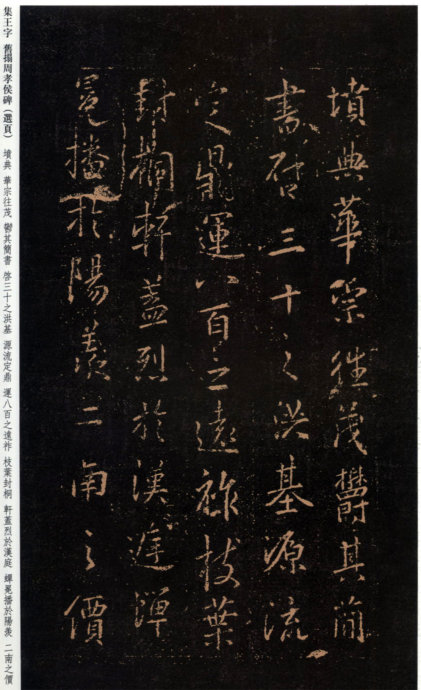 墳典華宗往茂欝其簡
書啓三十之洪基源流
定鼎運八百之遠祚枝葉
封桐軒蓋烈於漢庭蟬
冕播於陽羨二南之價
集王字 舊搨周孝侯碑(選頁) 墳典 華宗往茂 鬱其簡書 啓三十之洪基 源流定鼎 運八百之遠祚 枝葉封桐 軒蓋烈於漢庭 蟬冕播於陽羨 二南之價